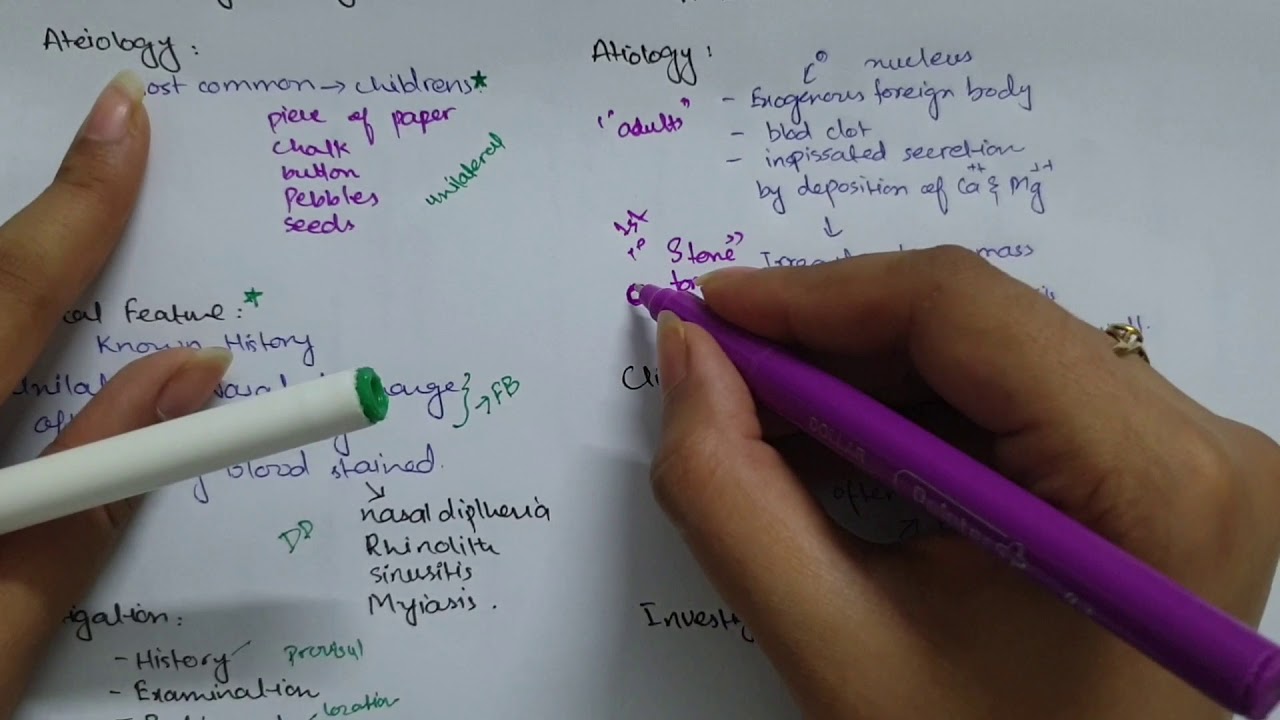 Ateiology:
ost common → childrens*
piece of paper
chalk
button
Pebbles
seeds
unilateral
cal Feature: *
Known History
Unila nasal
arge } → FB
blood stained.
↓
nasal diptheria
Rhinolith
sinusitis
Myiasis.
DD
igation:
- History
Previsul
- Examination
location
Atiology:
"adults"
1° nucleus
- Exogenous foreign body
- blod clot
- inspissated secretion
by deposition of Ca++ & Mg++
↓
mass
"Stone"
Cli
often
Investig
DOLLAR